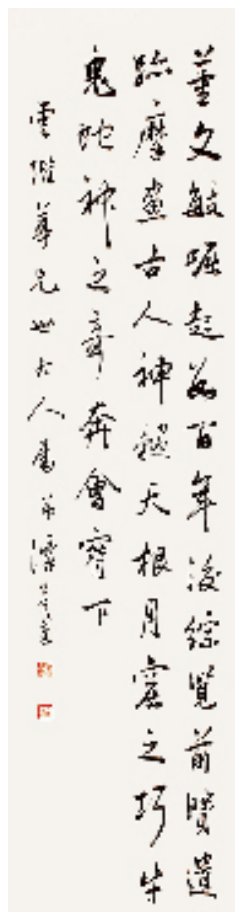 董文敏崛起百年後綜覽前賢遺
跡摩盡古人神髓天根月窟之巧牛
鬼蛇神之奇奔會下
雲尊兄世大人屬弟